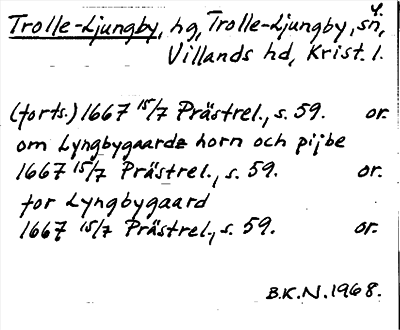 4.
Trolle-Ljungby, hg, Trolle-Ljungby, sn,
Villands hd, Krist. l.
(forts.) 1667 15/7 Prästrel., s. 59. or.
om Lyngbygaards horn och pijbe
1667 15/7 Prästrel., s. 59. or.
for Lyngbygaard
1667 15/7 Prästrel., s. 59. or.
B.K.N. 1968.